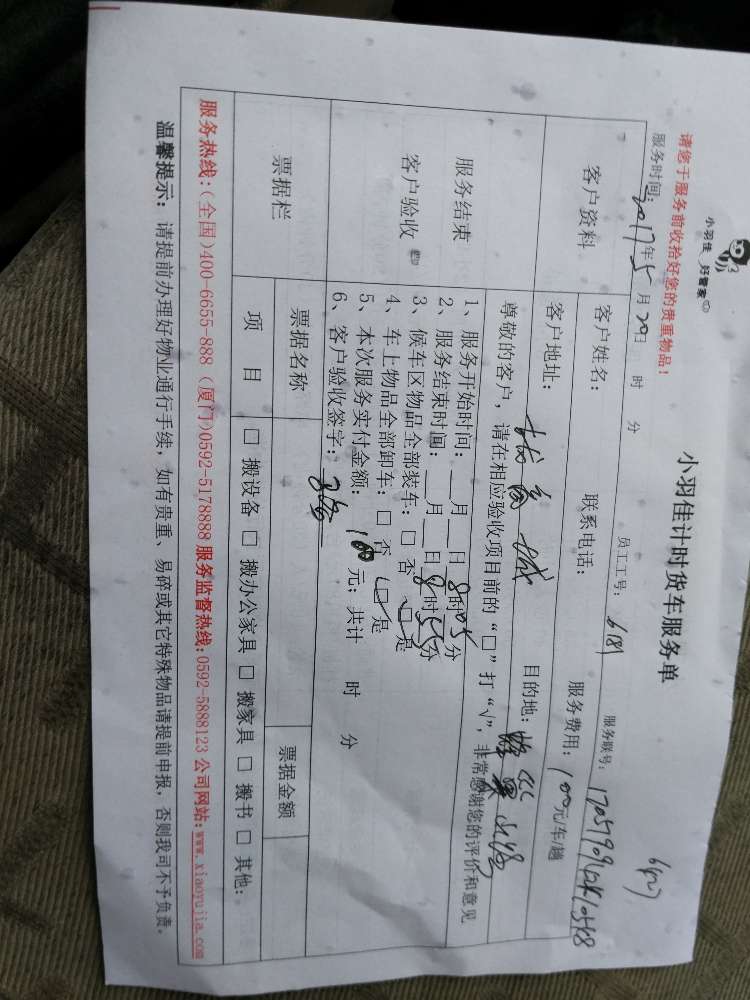 小羽佳 好管家
小羽佳计时货车服务单
请您于服务前收拾好您的贵重物品！
服务时间：2017年5月20日 时 分 员工工号：6181 服务联号：
客户资料
客户姓名： 联系电话： 服务费用：100元/车/趟
客户地址： 目的地：
服务结束
客户验收
尊敬的客户，请在相应验收项目前的“□”打“√”，非常感谢您的评价和意见
1、服务开始时间：__月__日8时05分
2、服务结束时间：__月__日8时55分
3、候车区物品全部装车：□ 否 □ 是
4、车上物品全部卸车：□ 否 □ 是
5、本次服务实付金额：100元；共计 时 分
6、客户验收签字：
票据栏
票据名称 票据金额
项 目 □ 搬设备 □ 搬办公家具 □ 搬家具 □ 搬书 □ 其他：
服务热线：(全国)400-6655-888 (厦门)0592-5178888 服务监督热线:0592-5888123 公司网站:www.xiaoyujia.com
温馨提示：请提前办理好物业通行手续，如有贵重、易碎或其它特殊物品请提前申报，否则我司不予负责。